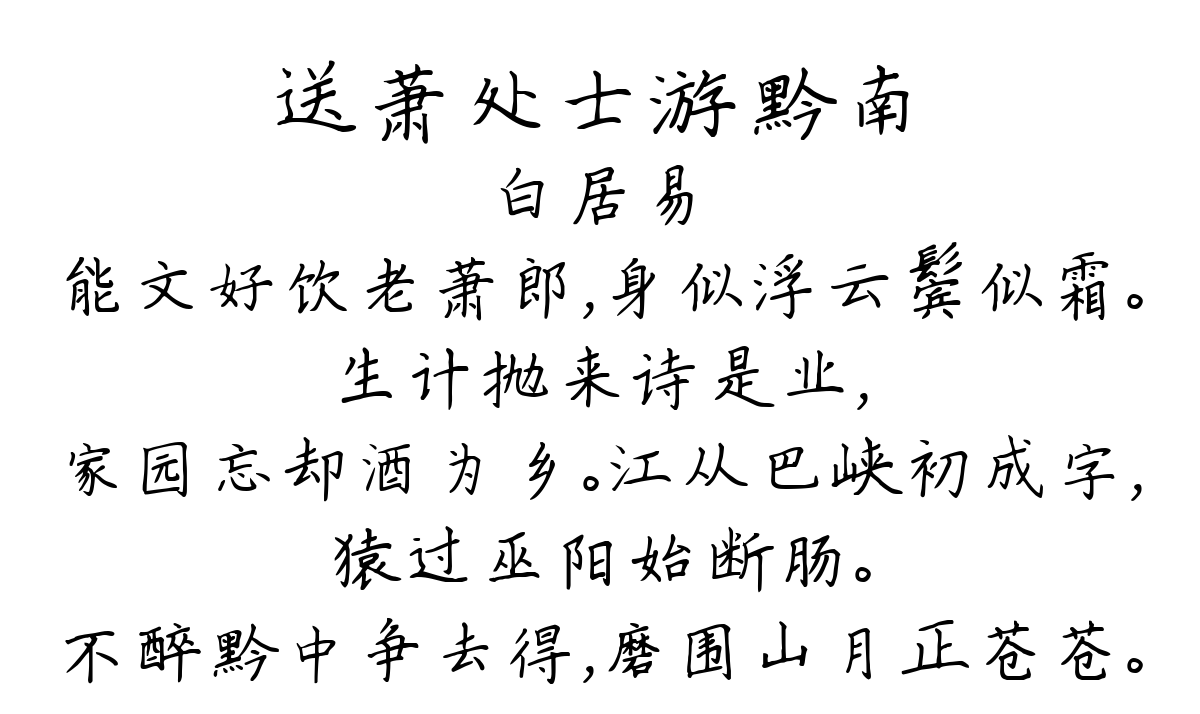 送萧处士游黔南
白居易
能文好饮老萧郎,身似浮云鬓似霜。
生计抛来诗是业,
家园忘却酒为乡。江从巴峡初成字,
猿过巫阳始断肠。
不醉黔中争去得,磨围山月正苍苍。